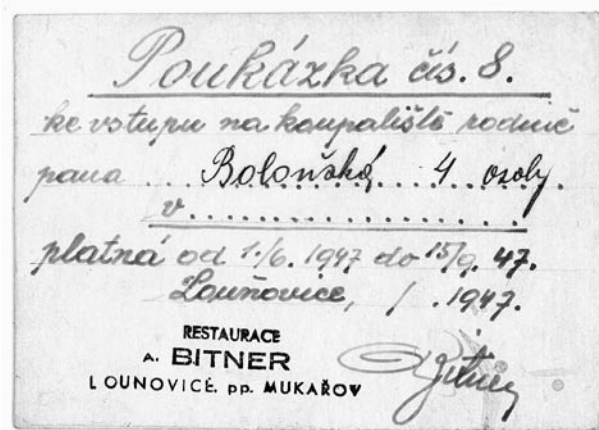 Poukázka čís. 8.
ke vstupu na koupaliště rodině
pana ... Boloňská, ... 4 osoby.
v ..................
platná od 1./6. 1947 do 15/9. 47.
Louňovice, / . 1947.
RESTAURACE
A. BITNER
LOUNOVICE. pp. MUKAŘOV
Bitner